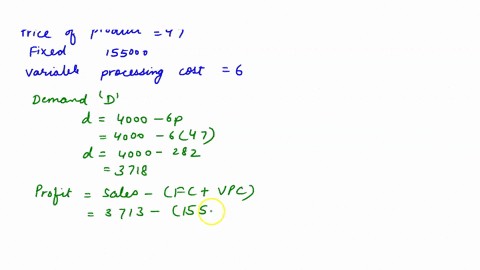 Price of product = 47
Fixed 155000
Variable processing cost = 6
Demand 'D'
d = 4000 - 6p
= 4000 - 6(47)
d = 4000 - 282
= 3718
Profit = Sales - (FC + VPC)
= 3713 - (155.